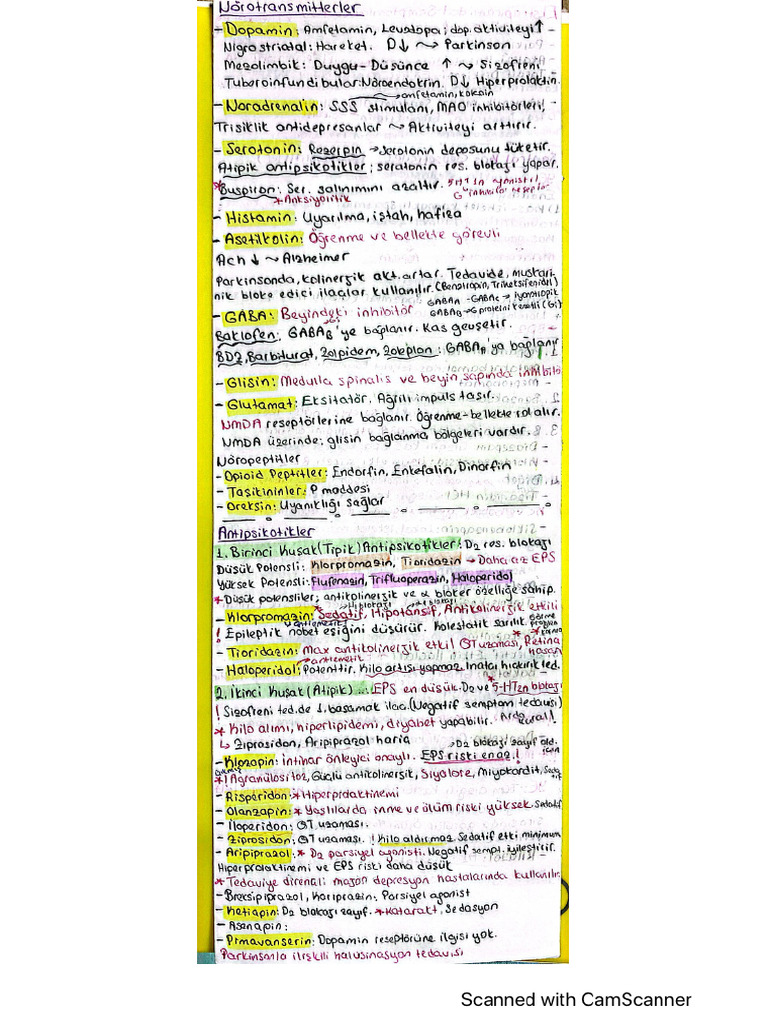 Nörotransmitterler
- Dopamin: Amfetamin, Levadopa; dop. aktiviteyi ↑
Nigrostriatal: Hareket. D↓ ⤳ Parkinson
Mezolimbik: Duygu-Düşünce ↑ ⤳ Şizofreni
Tuberoinfundibular: Nöroendokrin. D↓ Hiperprolaktin.
→ amfetamin, kokain
- Noradrenalin: SSS stimülanı, MAO inhibitörleri,
Trisiklik antidepresanlar ⤳ Aktiviteyi arttırır.
- Serotonin: Rezerpin → Serotonin deposunu tüketir.
Atipik antipsikotikler; seratonin res. blokajı yapar.
*Buspiron: Ser. salınımını azaltır. 5HT1A agonisti
* Anksiyolitik
- Histamin: Uyarılma, iştah, hafıza
- Asetilkolin: Öğrenme ve bellekte görevli
Ach ↓ ⤳ Alzheimer
Parkinsonda, kolinerjik akt. artar. Tedavide, muskari-
nik bloke edici ilaçlar kullanılır. (Benztropin, Triheksifenidil)
- GABA: Beyindeki inhibitör
GABAA - GABAC → iyonotropik
GABAB → G proteini kenetli (Gi)
Baklofen: GABAB'ye bağlanır. Kas gevşetir.
BDZ, Barbitürat, Zolpidem, Zaleplon: GABAA'ya bağlanır
- Glisin: Medulla spinalis ve beyin sapında inhibitö
- Glutamat: Eksitatör. Ağrılı impuls taşır.
NMDA reseptörlerine bağlanır. Öğrenme-bellekte rol alır.
NMDA üzerinde; glisin bağlanma bölgeleri vardır.
Nöropeptitler
- Opioid Peptitler: Endorfin, Enkefalin, Dinorfin
- Taşikininler: P maddesi
- Oreksin: Uyanıklığı sağlar
Antipsikotikler
1. Birinci Kuşak (Tipik) Antipsikotikler: D2 res. blokajı
Düşük Potensli: Klorpromazin, Tioridazin → Daha az EPS
Yüksek Potensli: Flufenazin, Trifluoperazin, Haloperidol
* Düşük potensliler; antikolinerjik ve α bloker özelliğe sahip.
H1 blokajı α1 blokajı
- Klorpromazin: Sedatif, Hipotansif, Antikolinerjik etkili
antiemetik
! Epileptik nöbet eşiğini düşürür. Kolestatik sarılık.
- Tioridazin: Max antikolinerjik etki! QT uzaması, Retina hasarı
antiemetik
- Haloperidol: Potenttir. Kilo artışı yapmaz. İnatçı hıçkırık ted.
2. İkinci Kuşak (Atipik)...: EPS en düşük. D2 ve 5-HT2A blokajı
! Şizofreni ted. de 1. basamak ilaç. (Negatif semptom tedavisi)
* Kilo alımı, hiperlipidemi, diyabet yapabilir.
↳ Ziprosidon, Aripiprazol hariç
→ D2 blokajı zayıf old. için
- Klozapin: intihar önleyici onaylı. EPS riski en az!
*! Agranülositoz, Güçlü antikolinerjik, Siyalore, Miyokardit, Sedatif
- Risperidon: * Hiperprolaktinemi
- Olanzapin: * Yaşlılarda inme ve ölüm riski yüksek. Sedatif
- İloperidon: QT uzaması.
- Ziprosidon: QT uzaması. ! Kilo aldırmaz. Sedatif etki minimum
- Aripiprazol: * D2 parsiyel agonisti. Negatif sempt. iyileştirir.
Hiperprolaktinemi ve EPS riski daha düşük
* Tedaviye dirençli majör depresyon hastalarında kullanılır.
- Breksipiprazol, Kariprazin: Parsiyel agonist
- Ketiapin: D2 blokajı zayıf. * Katarakt, Sedasyon
- Asenapin:
- Pimavanserin: Dopamin reseptörüne ilgisi yok.
Parkinsonla ilişkili halüsinasyon tedavisi
Scanned with CamScanner